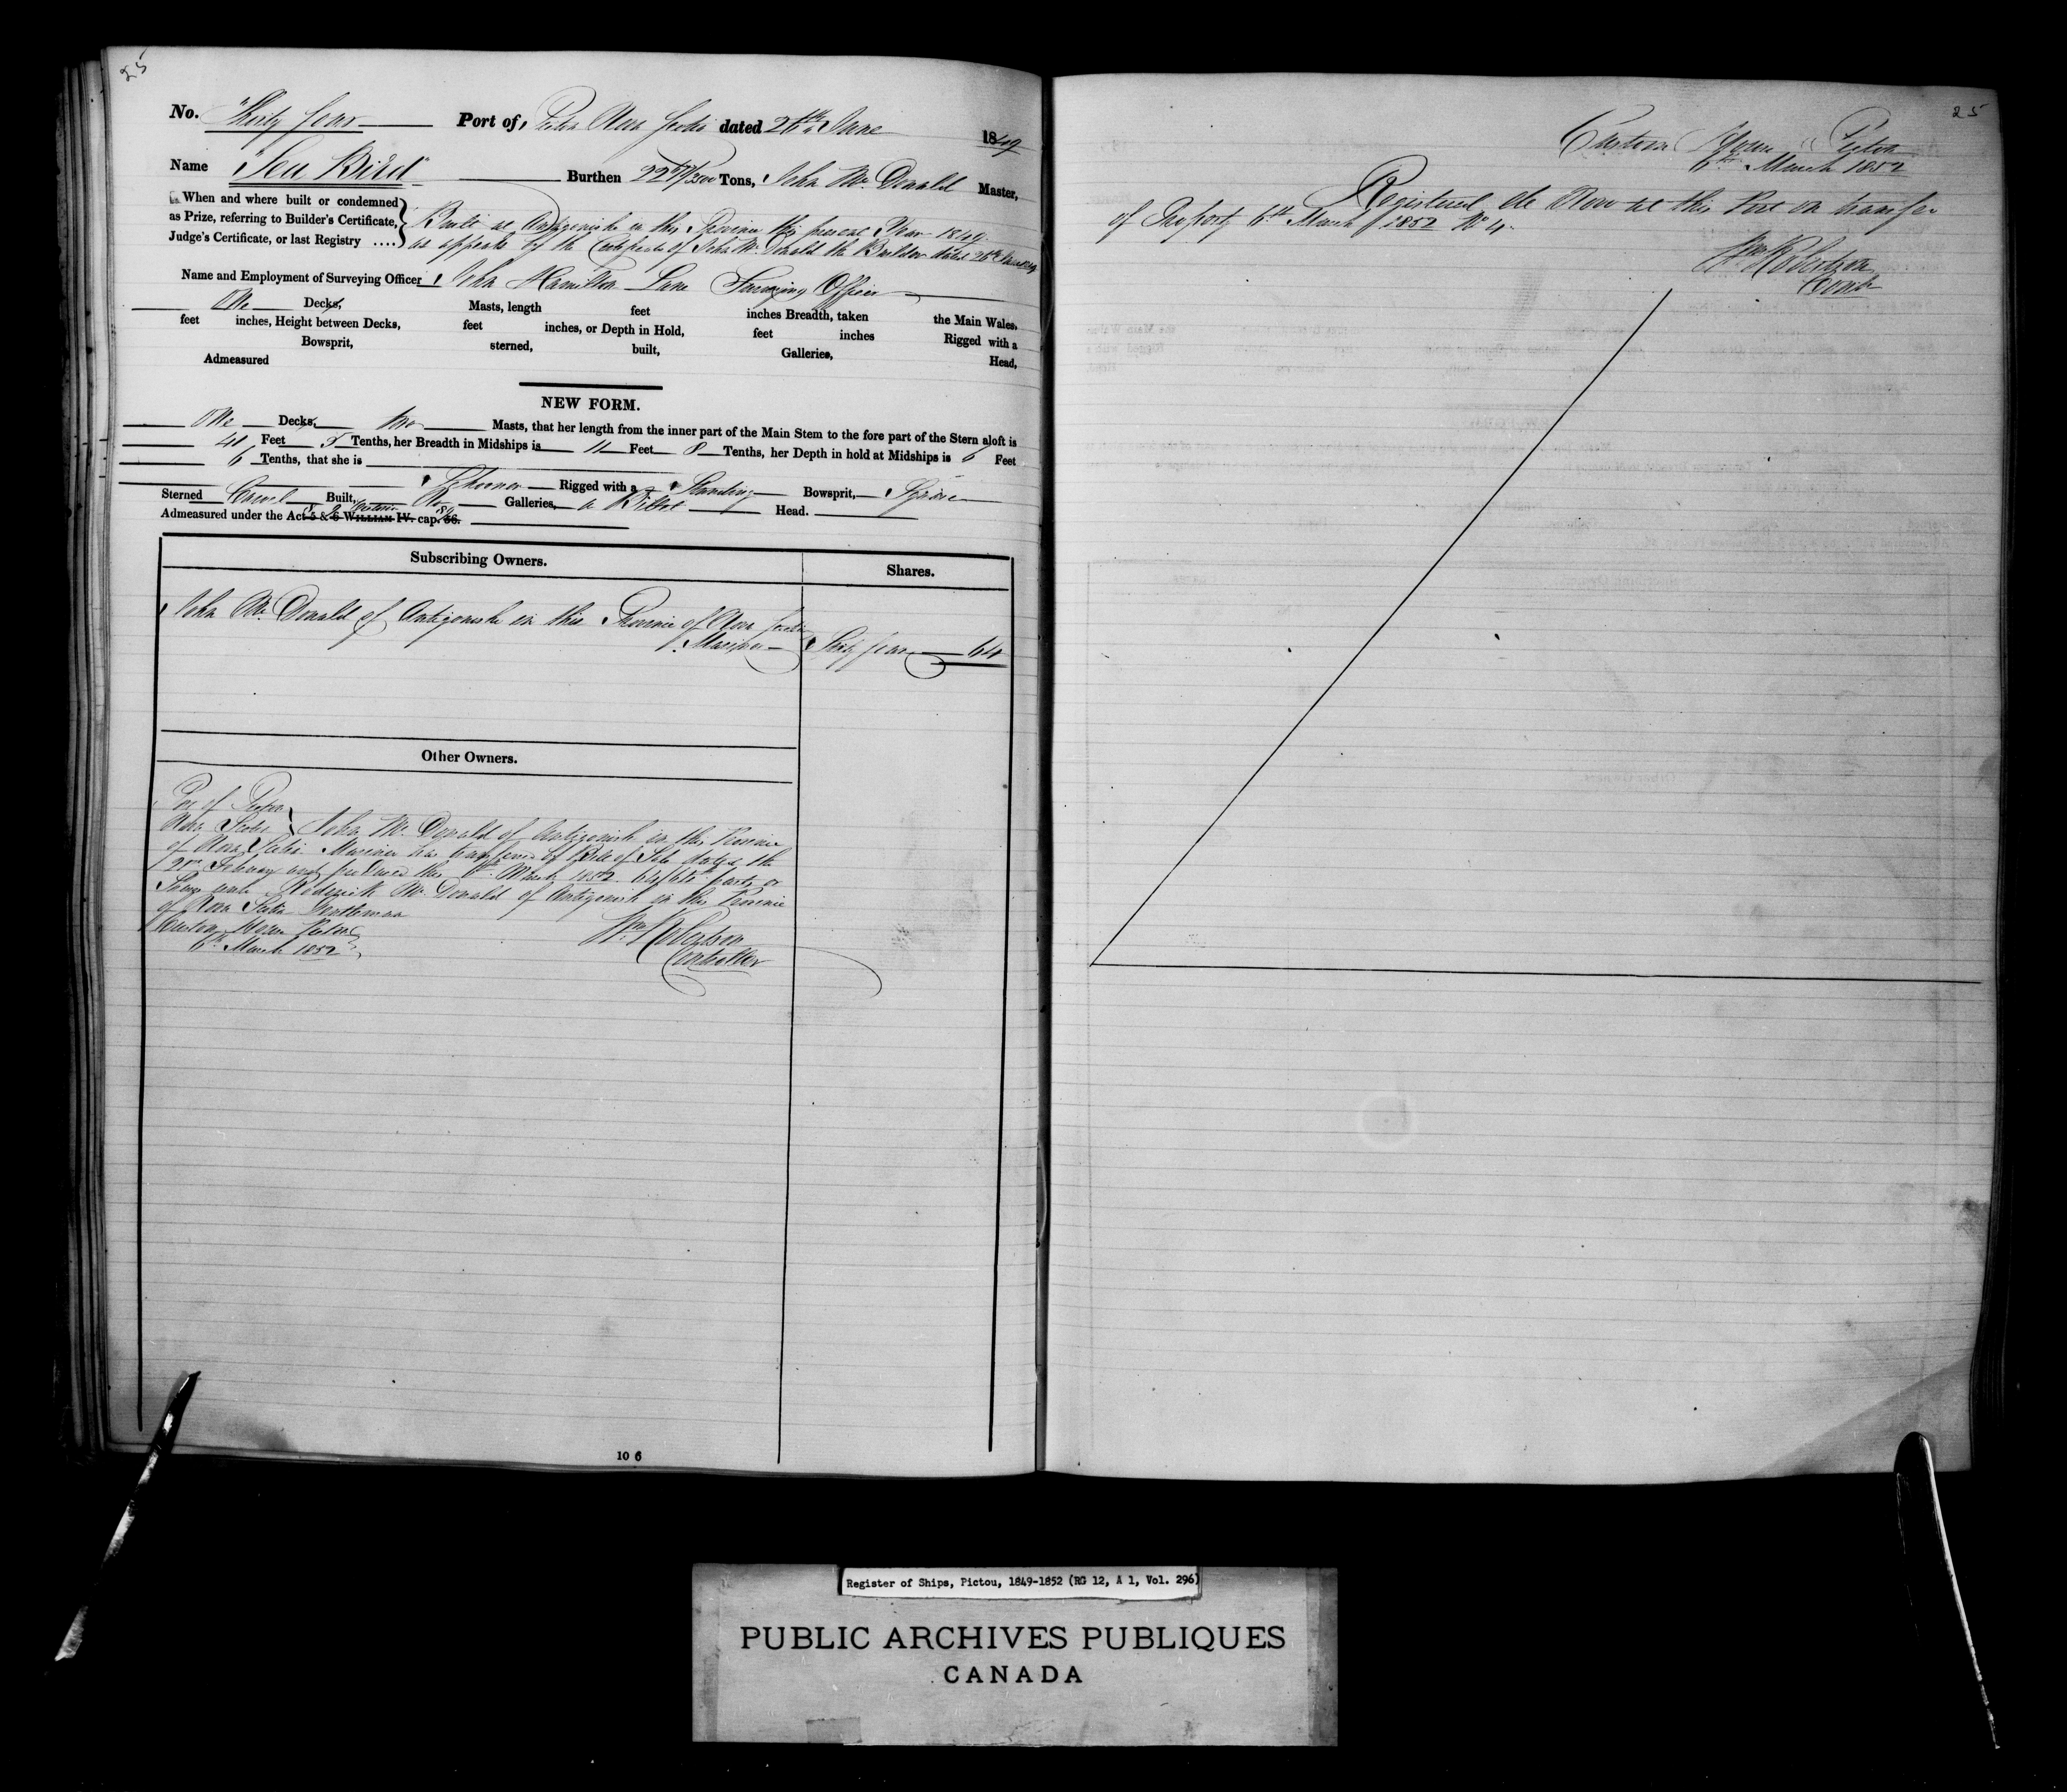 25
No. Thirty four Port of Pictou Nova Scotia dated 26th June 1849
Name "Sea Bird" Burthen 22 /3500 Tons, John McDonald Master,
When and where built or condemned
as Prize, referring to Builder's Certificate,
Judge's Certificate, or last Registry ....
Built at Antigonishe in this Province this present Year 1849
as appears by the Certificate of John McDonald the Builder dated 26th June 1849
Name and Employment of Surveying Officer, John Hamilton Lane Surveying Officer
One Decks, Masts, length feet inches Breadth, taken the Main Wales,
feet inches, Height between Decks, feet inches, or Depth in Hold, feet inches Rigged with a
Bowsprit, sterned, built, Galleries, Head,
Admeasured
NEW FORM.
One Decks, two Masts, that her length from the inner part of the Main Stem to the fore part of the Stern aloft is
40 Feet 5 Tenths, her Breadth in Midships is 11 Feet 8 Tenths, her Depth in hold at Midships is 6 Feet
6 Tenths, that she is Schooner Rigged with a Standing Bowsprit, Square
Sterned Carvel Built, No Galleries, a Billet Head.
Admeasured under the Act 5 & 6 WILLIAM IV. cap. 56. 8 & 9 Victoria
Subscribing Owners. Shares.
John McDonald of Antigonishe in this Province of Nova Scotia
Mariner Sixty four 64
Other Owners.
Port of Pictou
Nova Scotia John McDonald of Antigonish in the Province
of Nova Scotia Mariner has transferred by Bill of Sale dated the
February and produced this 6th March 1852 64/64th parts or
Shares unto Roderick McDonald of Antigonish in this Province
of Nova Scotia Gentleman
Custom House Pictou
6th March 1852
Wm Robertson
Controller
10 6
25
Custom House Pictou
6th March 1852
Registered de Novo at this Port on transfer
of Property 6th March 1852 No 4
Wm Robertson
Contr
Register of Ships, Pictou, 1849-1852 (RG 12, A 1, Vol. 296)
PUBLIC ARCHIVES PUBLIQUES
CANADA